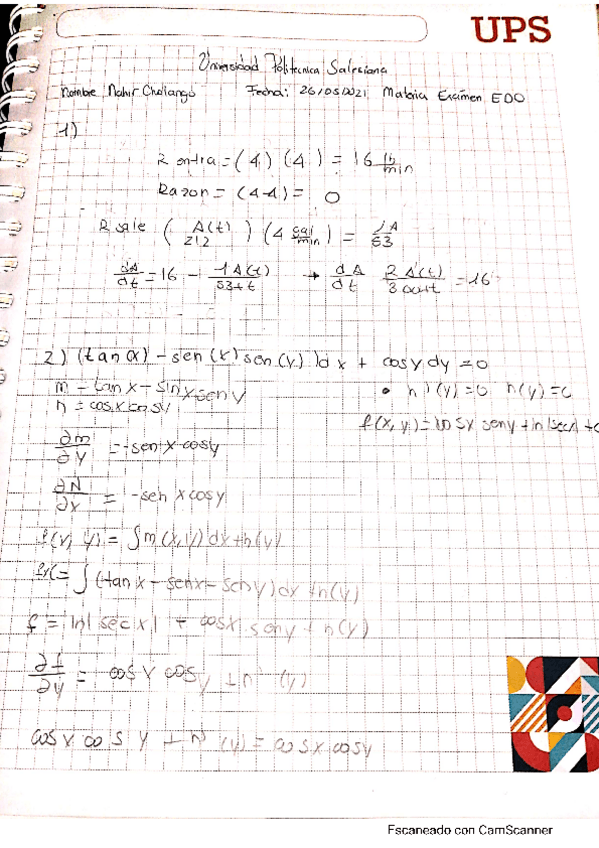 UPS
Universidad Politecnica Salesiana
Nombre Nahir Chalango Fecha: 26/05/2021 Materia Examen EDO
1)
R entra = (4) (4) = 16 lb/min
Razon = (4-4) = 0
R sale (A(t)/212) (4 gal/min) = 1A/53
dA/dt = 16 - 1A(t)/53+t → dA/dt 2A(t)/300+t = 16
2) (tan(x) - sen(x) sen(y)) dx + cosy dy = 0
m - tanx - sinx seny
n = cosx cosy
• h'(y) = 0 h(y) = c
f(x, y) = cosx seny + ln|secx| + c
∂m/∂y = -senx cosy
∂N/∂x = -senx cosy
f(x, y) = ∫m(x,y) dx + h(y)
= ∫(tanx - senx - seny) dx + h(y)
f = ln|secx| + cosx seny + h(y)
∂f/∂y = cosx cosy + h'(y)
cosx cosy + h'(y) = cosx cosy
Escaneado con CamScanner